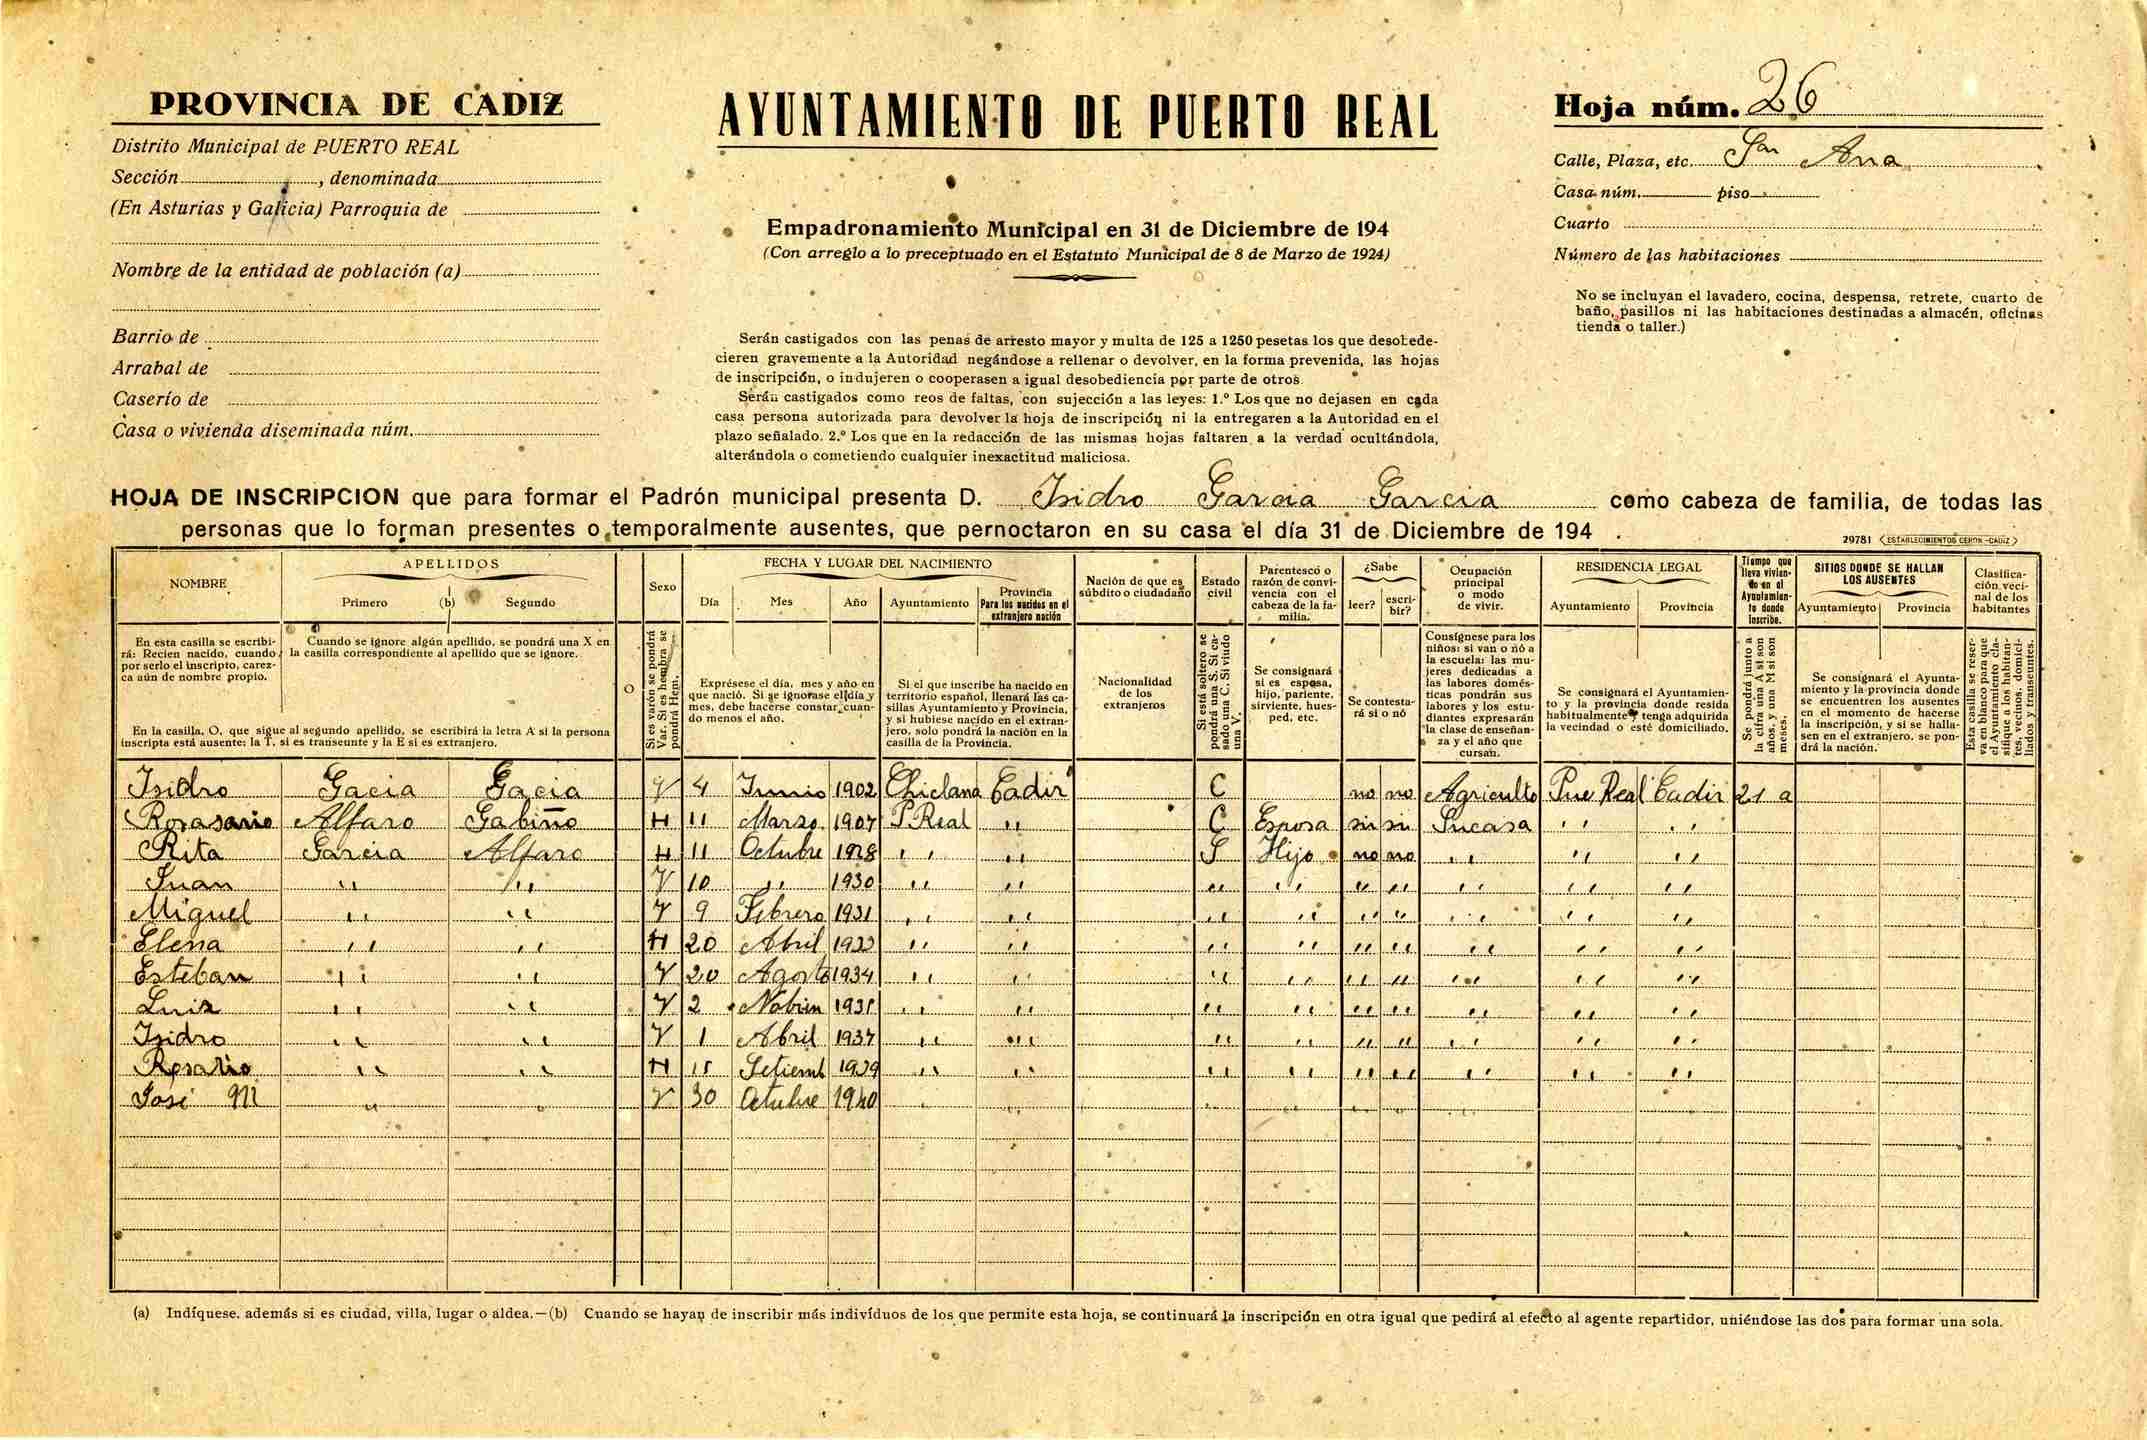 PROVINCIA DE CADIZ
Distrito Municipal de PUERTO REAL
Sección , denominada
(En Asturias y Galicia) Parroquia de
Nombre de la entidad de población (a)
Barrio de
Arrabal de
Caserío de
Casa o vivienda diseminada núm.
AYUNTAMIENTO DE PUERTO REAL
Empadronamiento Municipal en 31 de Diciembre de 194
(Con arreglo a lo preceptuado en el Estatuto Municipal de 8 de Marzo de 1924)
Serán castigados con las penas de arresto mayor y multa de 125 a 1250 pesetas los que desobede-
cieren gravemente a la Autoridad negándose a rellenar o devolver, en la forma prevenida, las hojas
de inscripción, o indujeren o cooperasen a igual desobediencia por parte de otros.
Serán castigados como reos de faltas, con sujección a las leyes: 1.º Los que no dejasen en cada
casa persona autorizada para devolver la hoja de inscripción ni la entregaren a la Autoridad en el
plazo señalado. 2.º Los que en la redacción de las mismas hojas faltaren a la verdad ocultándola,
alterándola o cometiendo cualquier inexactitud maliciosa.
Hoja núm. 26
Calle, Plaza, etc. Sta Ana
Casa núm. piso
Cuarto
Número de las habitaciones
No se incluyan el lavadero, cocina, despensa, retrete, cuarto de
baño, pasillos ni las habitaciones destinadas a almacén, oficinas
tienda o taller.)
HOJA DE INSCRIPCION que para formar el Padrón municipal presenta D. Isidro Garcia Garcia como cabeza de familia, de todas las
personas que lo forman presentes o temporalmente ausentes, que pernoctaron en su casa el día 31 de Diciembre de 194 .
29781 ESTABLECIMIENTOS CERON-CADIZ
NOMBRE
APELLIDOS
Primero (b) Segundo
Sexo
FECHA Y LUGAR DEL NACIMIENTO
Día Mes Año Ayuntamiento
Provincia
Para los nacidos en el
extranjero nación
Nación de que es
súbdito o ciudadano
Estado
civil
Parentesco o
razón de convi-
vencia con el
cabeza de la fa-
milia.
¿Sabe
leer? escri-
bir?
Ocupación
principal
o modo
de vivir.
RESIDENCIA LEGAL
Ayuntamiento Provincia
Tiempo que
lleva vivien-
do en el
Ayuntamien-
to donde
inscribe.
SITIOS DONDE SE HALLAN
LOS AUSENTES
Ayuntamiento Provincia
Clasifica-
ción veci-
nal de los
habitantes
En esta casilla se escribi-
rá: Recien nacido, cuando
por serlo el inscripto, carez-
ca aún de nombre propio.
Cuando se ignore algún apellido, se pondrá una X en
la casilla correspondiente al apellido que se ignore.
En la casilla, O, que sigue al segundo apellido, se escribirá la letra A si la persona
inscripta está ausente: la T, si es transeunte y la E si es extranjero.
O
Si es varón se pondrá
Var. Si es hembra se
pondrá Hem.
Exprésese el día, mes y año en
que nació. Si se ignorase el día y
mes, debe hacerse constar cuan-
do menos el año.
Si el que inscribe ha nacido en
territorio español, llenará las ca-
sillas Ayuntamiento y Provincia,
y si hubiese nacido en el extran-
jero, solo pondrá la nación en la
casilla de la Provincia.
Nacionalidad
de los
extranjeros
Si está soltero se
pondrá una S. Si ca-
sado una C. Si viudo
una V.
Se consignará
si es esposa,
hijo, pariente,
sirviente, hues-
ped, etc.
Se contesta-
rá si o nó
Consígnese para los
niños: si van o nó a
la escuela: las mu-
jeres dedicadas a
las labores domés-
ticas pondrán sus
labores y los estu-
diantes expresarán
la clase de enseñan-
za y el año que
cursan.
Se consignará el Ayuntamien-
to y la provincia donde resida
habitualmente y tenga adquirida
la vecindad o esté domiciliado.
Se pondrá junto a
la cifra una A si son
años, y una M si son
meses.
Se consignará el Ayunta-
miento y la provincia donde
se encuentren los ausentes
en el momento de hacerse
la inscripción, y si se halla-
sen en el extranjero, se pon-
drá la nación.
Esta casilla se reser-
va en blanco para que
el Ayuntamiento cla-
sifique a los habitan-
tes, vecinos, domici-
liados y transeuntes.
Isidro Gacia Gacia V 4 Junio 1902 Chiclana Cadir C no no Agriculto Pue Real Cadir 21 a
Rorasario Alfaro Gabiño H 11 Marzo 1907 P Real " C Esposa si si Sucasa " "
Rita Garcia Alfaro H 11 Octubre 1928 " " S Hijo no no " " "
Juan " " V 10 " 1930 " " " " " " " " "
Miguel " " V 9 Febrero 1931 " " " " " " " " "
Elena " " H 20 Abril 1933 " " " " " " " " "
Esteban " " V 20 Agosto 1934 " " " " " " " " "
Luis " " V 2 Nobien " " " " " " " " "
Isidro " " V 1 Abril 1937 " " " " " " " " "
Rosario " " H 15 Setiemb 1939 " " " " " " " " "
José M " " V 30 Octubre 1940 " " " " " " " " "
(a) Indíquese, además si es ciudad, villa, lugar o aldea.—(b) Cuando se hayan de inscribir más indivíduos de los que permite esta hoja, se continuará la inscripción en otra igual que pedirá al efecto al agente repartidor, uniéndose las dos para formar una sola.